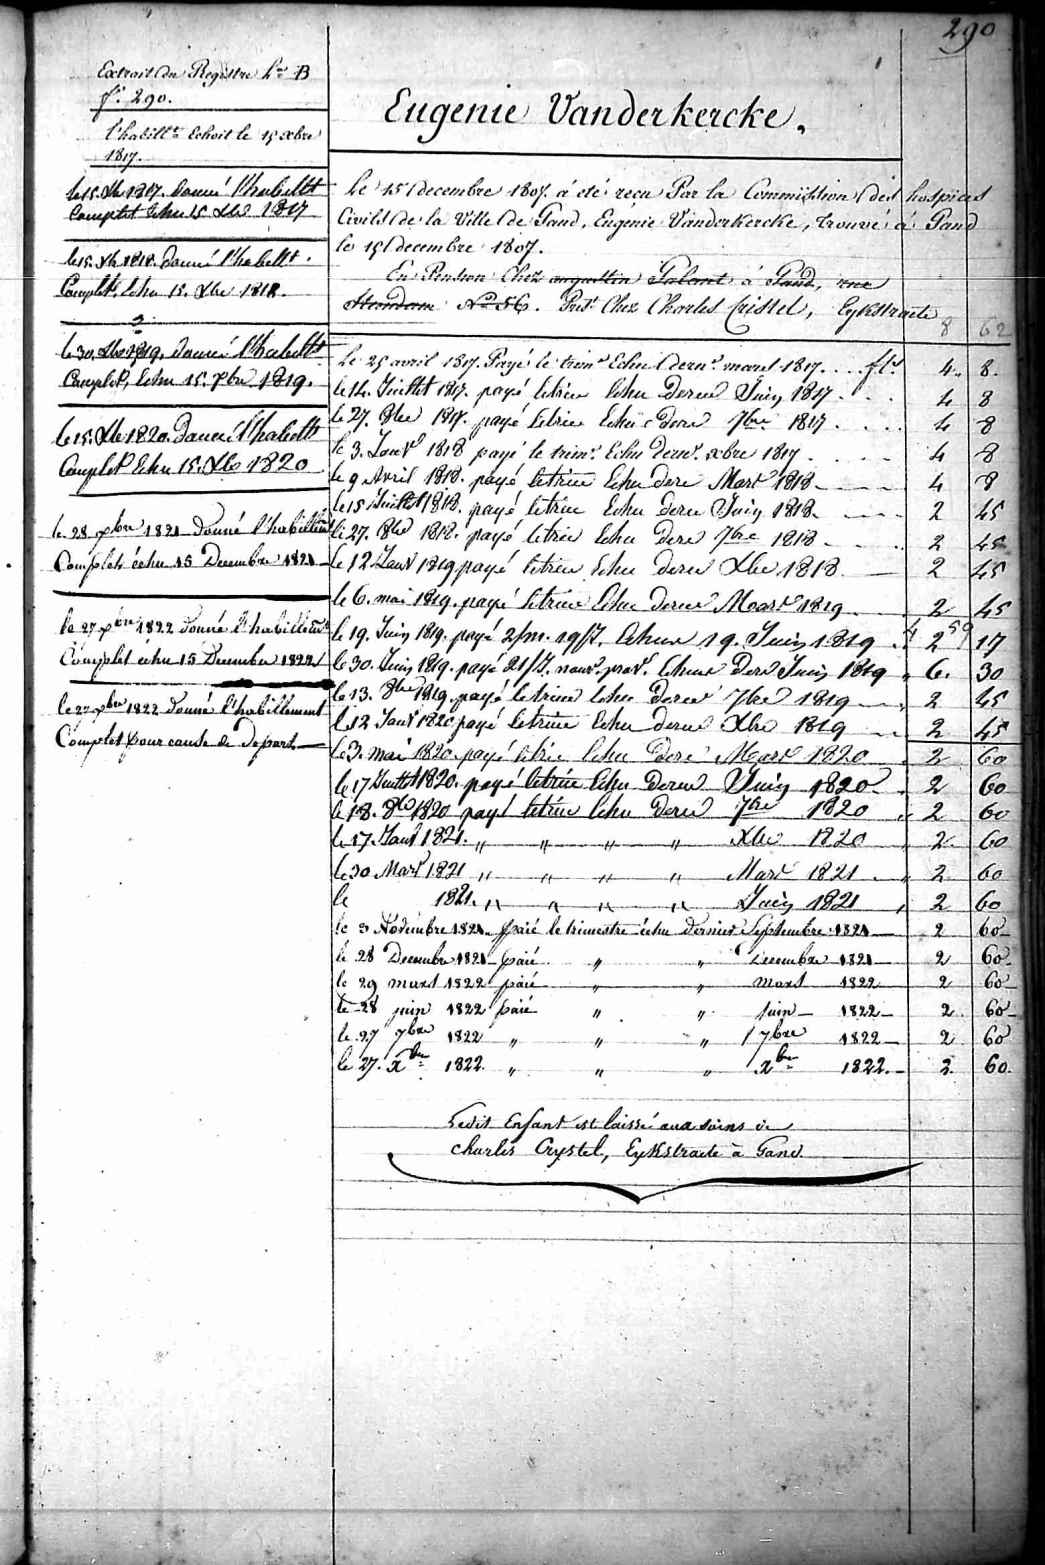 290
Extrait du Registre Lre B
f°. 290.
l'habillt echoit le 15 xbre
1817.
le 15. Xbr 1817. Donné l'habillt
Complet Echu 15 Xbre 1817
le 15. Xbr 1818. donné l'habillt.
Complet Echu 15. Xbre 1818.
le 30. Xbre 1819. donné l'habillt
Complet, Echu 15. Xbre 1819.
le 15. Xbr 1820. Donné l'habillt
Complet Echu 15. Xbre 1820
le 28 xbre 1821 Donné l'habillem
Complet échu 15 Decembre 1821
le 27 xbre 1822 Donné l'habillemt
Complet échu 15 Decembre 1822
le 27 xbre 1822 Donné l'habillement
Complet pour cause de Depart
Eugenie Vanderkercke.
Le 15 decembre 1807. à eté reçu Par la Commission des hospices
Civils de la Ville de Gand, Eugenie Vanderkercke, trouvé à Gand
le 15 decembre 1807.
En Pension Chez augustin à Gand, rue
No 56. Chez Charles Cristel, Eykstraete
8 62
Le 25 avril 1817. Payé le trimre Echu dernr mars 1817. . . fls 4. 8.
le 14. Juillet 1817. payé letrim Echu dernr Juin 1817 . . . 4 8
le 27. 8bre 1817. payé letrim Echu dernr 7bre 1817 . . . 4 8
le 3. Janvr 1818 payé le trimre Echu dernr. xbre 1817 . . . 4 8
le 9 Avril 1818. payé letrim Echu dernr Mars 1818 4 8
le 15 Juillet 1818. payé letrim Echu dernr Juin 1818. 2 45
le 27. 8bre 1818. payé letrim Echu dernr 7bre 1818 2 45
le 12 Janvr 1819 payé letrim Echu dernr Xbre 1818 2 45
le 6. mai 1819. payé letrim Echu dernr Mars 1819 2 45
le 19. Juin 1819. payé 2/m. 19/J. Echus 19. Juin 1819 2 17
4 59
le 30. Juin 1819. payé 21/J. nouvr. provr. Echus dernr Juin 1819 6. 30
le 13. 8bre 1819. payé letrim Echu dernr 7bre 1819 2 45
le 12 Janvr 1820 payé letrim Echu dernr Xbre 1819 2 45
le 3. mai 1820. payé letrim Echu dernr Mars 1820 2 60
le 17 Juillet 1820. payé letrim Echu dernr Juin 1820 2 60
le 18. 8bre 1820 payé letrim Echu dernr 7bre 1820 2 60
le 17. Janvr 1821. " " " " Xbre 1820 2 60
le 30 Mars 1821 " " " " Mars 1821 2 60
le 1821. " " " " Juin 1821 2 60
le 3 Novembre 1821 paié le trimestre échu dernier Septembre 1821 2 60
le 28 Decembre 1821 paié " " Decembre 1821 2 60
le 29 mars 1822 paié " " mars 1822 2 60
le 28 juin 1822 paié " " juin 1822 2 60
le 27 7bre 1822 " " " 7bre 1822 2 60
le 27. xbre 1822. " " " xbre 1822. 2. 60.
Ledit Enfant est laissé aux soins de
Charles Crystel, Eykstraete à Gand.